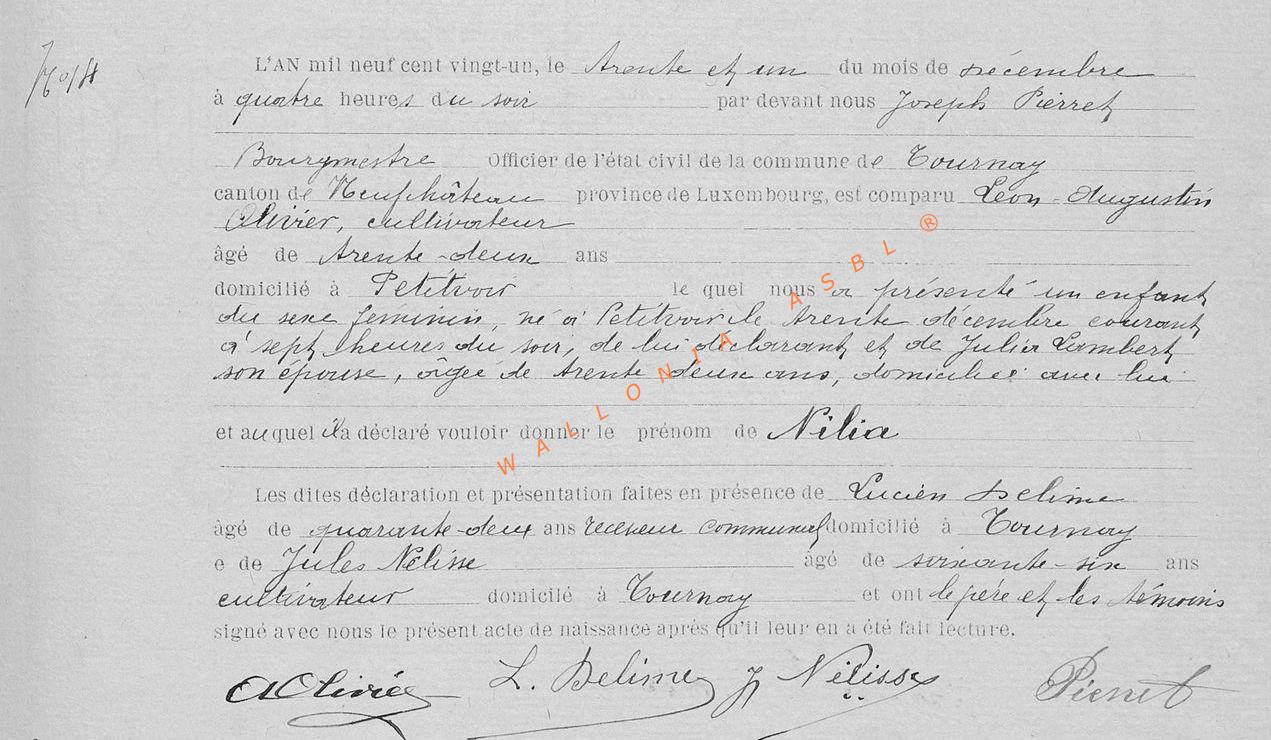 L'AN mil neuf cent vingt-un, le trente et un du mois de décembre
à quatre heures du soir par devant nous Joseph Pierret
Bourgmestre Officier de l'état civil de la commune de Tournay
canton de Neufchâteau province de Luxembourg, est comparu Léon-Augustin
Olivier, cultivateur
âgé de trente-deux ans
domicilié à Petitvoir le quel nous a présenté un enfant
du sexe feminin, né à Petitvoir le trente décembre courant
à sept heures du soir, de lui déclarant et de Julia Lambert
son épouse, âgée de trente deux ans, domiciliée avec lui
et auquel il a déclaré vouloir donner le prénom de Nilia
Les dites déclaration et présentation faites en présence de Lucien Delime
âgé de quarante-deux ans receveur communal domicilié à Tournay
e de Jules Nélisse âgé de soixante-six ans
cultivateur domicilié à Tournay et ont le père et les témoins
signé avec nous le présent acte de naissance après qu'il leur en a été fait lecture.
A Olivier L. Delime J Nélisse Pierret
WALLONIA ASBL ®